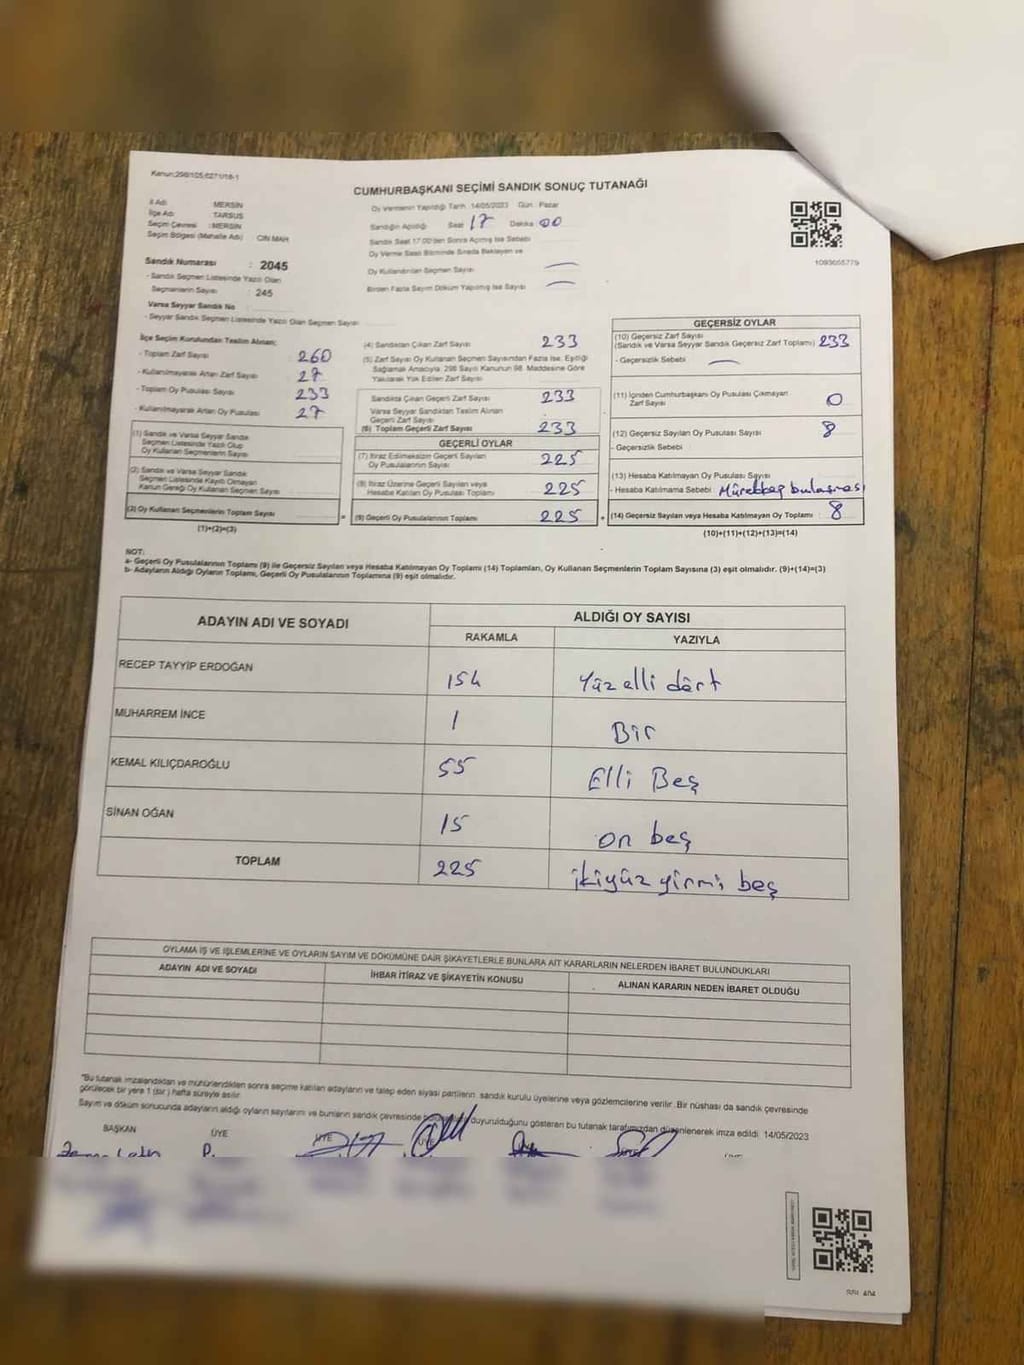 Kanun:298/105,6271/18-1
CUMHURBAŞKANI SEÇİMİ SANDIK SONUÇ TUTANAĞI
İl Adı MERSİN
İlçe Adı TARSUS
Seçim Çevresi :MERSİN
Seçim Bölgesi (Mahalle Adı) CIN MAH
Sandık Numarası : 2045
- Sandık Seçmen Listesinde Yazılı Olan
Seçmenlerin Sayısı : 245
Varsa Seyyar Sandık No
- Seyyar Sandık Seçmen Listesinde Yazılı Olan Seçmen Sayısı
Oy Vermenin Yapıldığı Tarih 14/05/2023 Gün : Pazar
Sandığın Açıldığı Saat 17 Dakika 00
Sandık Saat 17.00'den Sonra Açılmış İse Sebebi
Oy Verme Saati Bitiminde Sırada Bekleyen ve
Oy Kullandırılan Seçmen Sayısı
Birden Fazla Sayım Döküm Yapılmış İse Sayısı
1093605779
İlçe Seçim Kurulundan Teslim Alınan;
- Toplam Zarf Sayısı : 260
- Kullanılmayarak Artan Zarf Sayısı : 27
- Toplam Oy Pusulası Sayısı : 233
- Kullanılmayarak Artan Oy Pusulası : 27
(1) Sandık ve Varsa Seyyar Sandık
Seçmen Listesinde Yazılı Olup
Oy Kullanan Seçmenlerin Sayısı
(2) Sandık ve Varsa Seyyar Sandık
Seçmen Listesinde Kayıtlı Olmayan
Kanun Gereği Oy Kullanan Seçmen Sayısı
(3) Oy Kullanan Seçmenlerin Toplam Sayısı
(1)+(2)=(3)
(4) Sandıktan Çıkan Zarf Sayısı : 233
(5) Zarf Sayısı Oy Kullanan Seçmen Sayısından Fazla İse, Eşitliği
Sağlamak Amacıyla, 298 Sayılı Kanunun 98. Maddesine Göre
Yakılarak Yok Edilen Zarf Sayısı
Sandıkta Çıkan Geçerli Zarf Sayısı : 233
Varsa Seyyar Sandıktan Teslim Alınan
Geçerli Zarf Sayısı
(6) Toplam Geçerli Zarf Sayısı : 233
GEÇERLİ OYLAR
(7) İtiraz Edilmeksizin Geçerli Sayılan
Oy Pusulalarının Sayısı : 225
(8) İtiraz Üzerine Geçerli Sayılan veya
Hesaba Katılan Oy Pusulası Toplamı : 225
= (9) Geçerli Oy Pusulalarının Toplamı : 225 +
GEÇERSİZ OYLAR
(10) Geçersiz Zarf Sayısı
(Sandık ve Varsa Seyyar Sandık Geçersiz Zarf Toplamı) : 233
- Geçersizlik Sebebi
(11) İçinden Cumhurbaşkanı Oy Pusulası Çıkmayan
Zarf Sayısı : 0
(12) Geçersiz Sayılan Oy Pusulası Sayısı : 8
- Geçersizlik Sebebi
(13) Hesaba Katılmayan Oy Pusulası Sayısı
- Hesaba Katılmama Sebebi : Mürekkep bulaşması
(14) Geçersiz Sayılan veya Hesaba Katılmayan Oy Toplamı : 8
(10)+(11)+(12)+(13)=(14)
NOT:
a- Geçerli Oy Pusulalarının Toplamı (9) ile Geçersiz Sayılan veya Hesaba Katılmayan Oy Toplamı (14) Toplamları, Oy Kullanan Seçmenlerin Toplam Sayısına (3) eşit olmalıdır. (9)+(14)=(3)
b- Adayların Aldığı Oyların Toplamı, Geçerli Oy Pusulalarının Toplamına (9) eşit olmalıdır.
ADAYIN ADI VE SOYADI ALDIĞI OY SAYISI
RAKAMLA YAZIYLA
RECEP TAYYİP ERDOĞAN 154 Yüz elli dört
MUHARREM İNCE 1 Bir
KEMAL KILIÇDAROĞLU 55 Elli Beş
SİNAN OĞAN 15 on beş
TOPLAM 225 ikiyüz yirmi beş
OYLAMA İŞ VE İŞLEMLERİNE VE OYLARIN SAYIM VE DÖKÜMÜNE DAİR ŞİKAYETLERLE BUNLARA AİT KARARLARIN NELERDEN İBARET BULUNDUKLARI
ADAYIN ADI VE SOYADI İHBAR İTİRAZ VE ŞİKAYETİN KONUSU ALINAN KARARIN NEDEN İBARET OLDUĞU
"Bu tutanak imzalandıktan ve mühürlendikten sonra seçime katılan adayların ve talep eden siyasi partilerin, sandık kurulu üyelerine veya gözlemcilerine verilir. Bir nüshası da sandık çevresinde
görülecek bir yere 1 (bir) hafta süreyle asılır.
Sayım ve döküm sonucunda adayların aldığı oyların sayılarını ve bunların sandık çevresinde duyurulduğunu gösteren bu tutanak tarafımızdan düzenlenerek imza edildi. 14/05/2023
BAŞKAN ÜYE ÜYE ÜYE